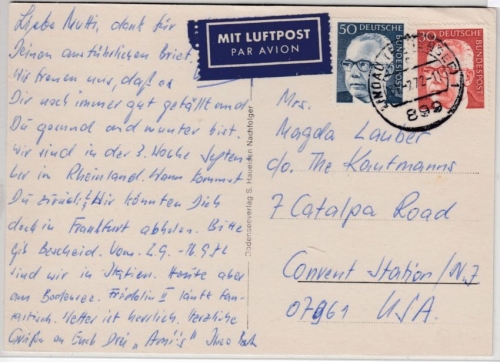 Liebe Mutti, dank für
Deinen ausführlichen Brief,
Wir freuen uns, daß es
Dir noch immer gut gefällt und
Du gesund und munter bist.
Wir sind in der 3. Woche Septem
ber in Rheinland. Wann kommst
Du zurück? Wir könnten Dich
doch in Frankfurt abholen. Bitte
gib Bescheid. Vom 2.9. - 16.9.
sind wir in Italien. Heute aber
am Bodensee. Fridolin II läuft fan-
tastisch. Wetter ist herrlich. Herzliche
Grüße an Euch Drei „Ami's"
Bodenseeverlag S. Nachfolger
MIT LUFTPOST
PAR AVION
50
DEUTSCHE
BUNDESPOST
30
DEUTSCHE
BUNDESPOST
LINDAU
899
Mrs.
Magda Lauber
c/o. The Kautmanns
7 Catalpa Road
Convent Station/N.J
07961 USA.